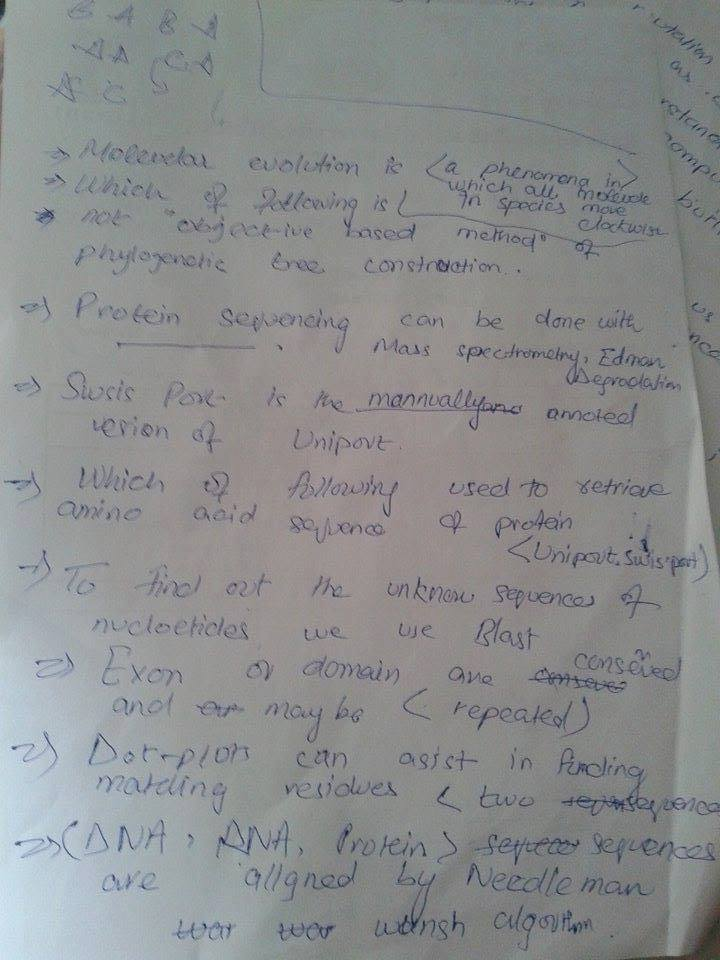 B A B A
A A C A
A C
=> Molecular evolution is <a phenomena in
which all molecule
in species move
clockwise>
=> Which of following is
not "objective based method" of
phylogenetic tree construction.
=> Protein sequencing can be done with
________. Mass spectrometry, Edman
Degradation
=> Swsis Port is the mannually annoted
version of Uniport.
=> Which of following used to retrieve
amino acid sequence of protein
<Uniport. swis-port>
=> To find out the unknow sequences of
nucloetides we use Blast
=> Exon or domain are conseved
and may be < repeated)
=> Dot-plots can asist in finding
matching residues < two sequence
=> (DNA, RNA, Protein> sequences
are alligned by Needleman
wunsh algorithm.
utation
as